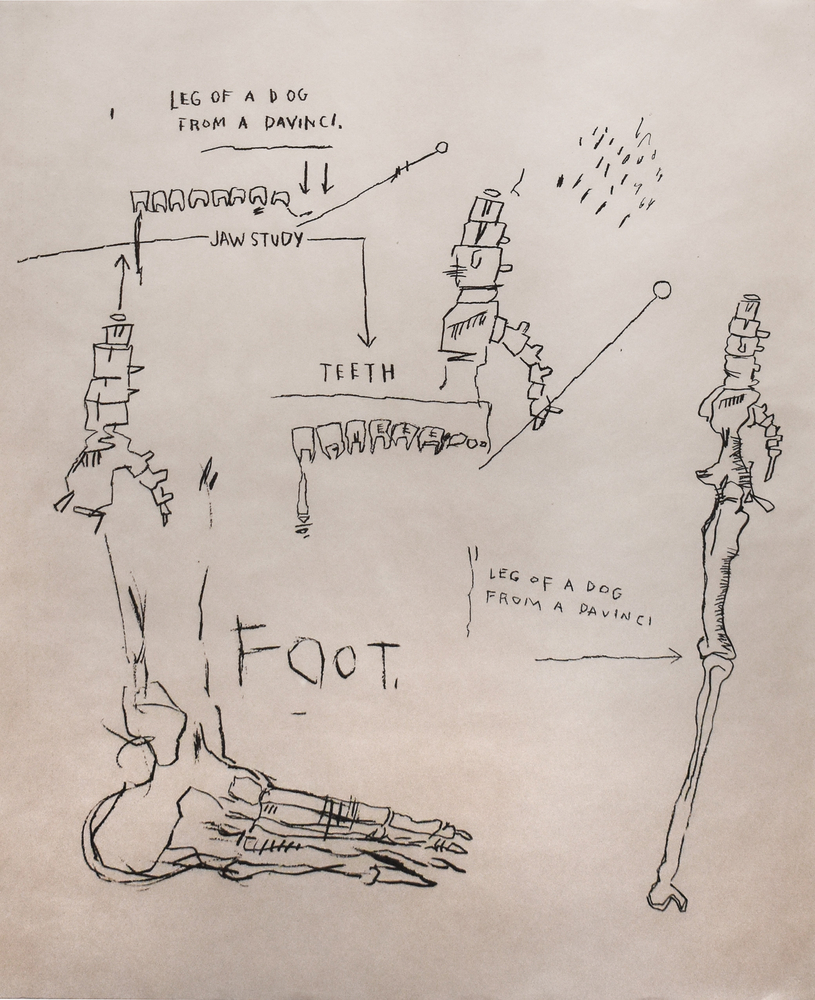 LEG OF A DOG
FROM A DAVINCI.
JAW STUDY
TEETH
LEG OF A DOG
FROM A DAVINCI
FOOT.